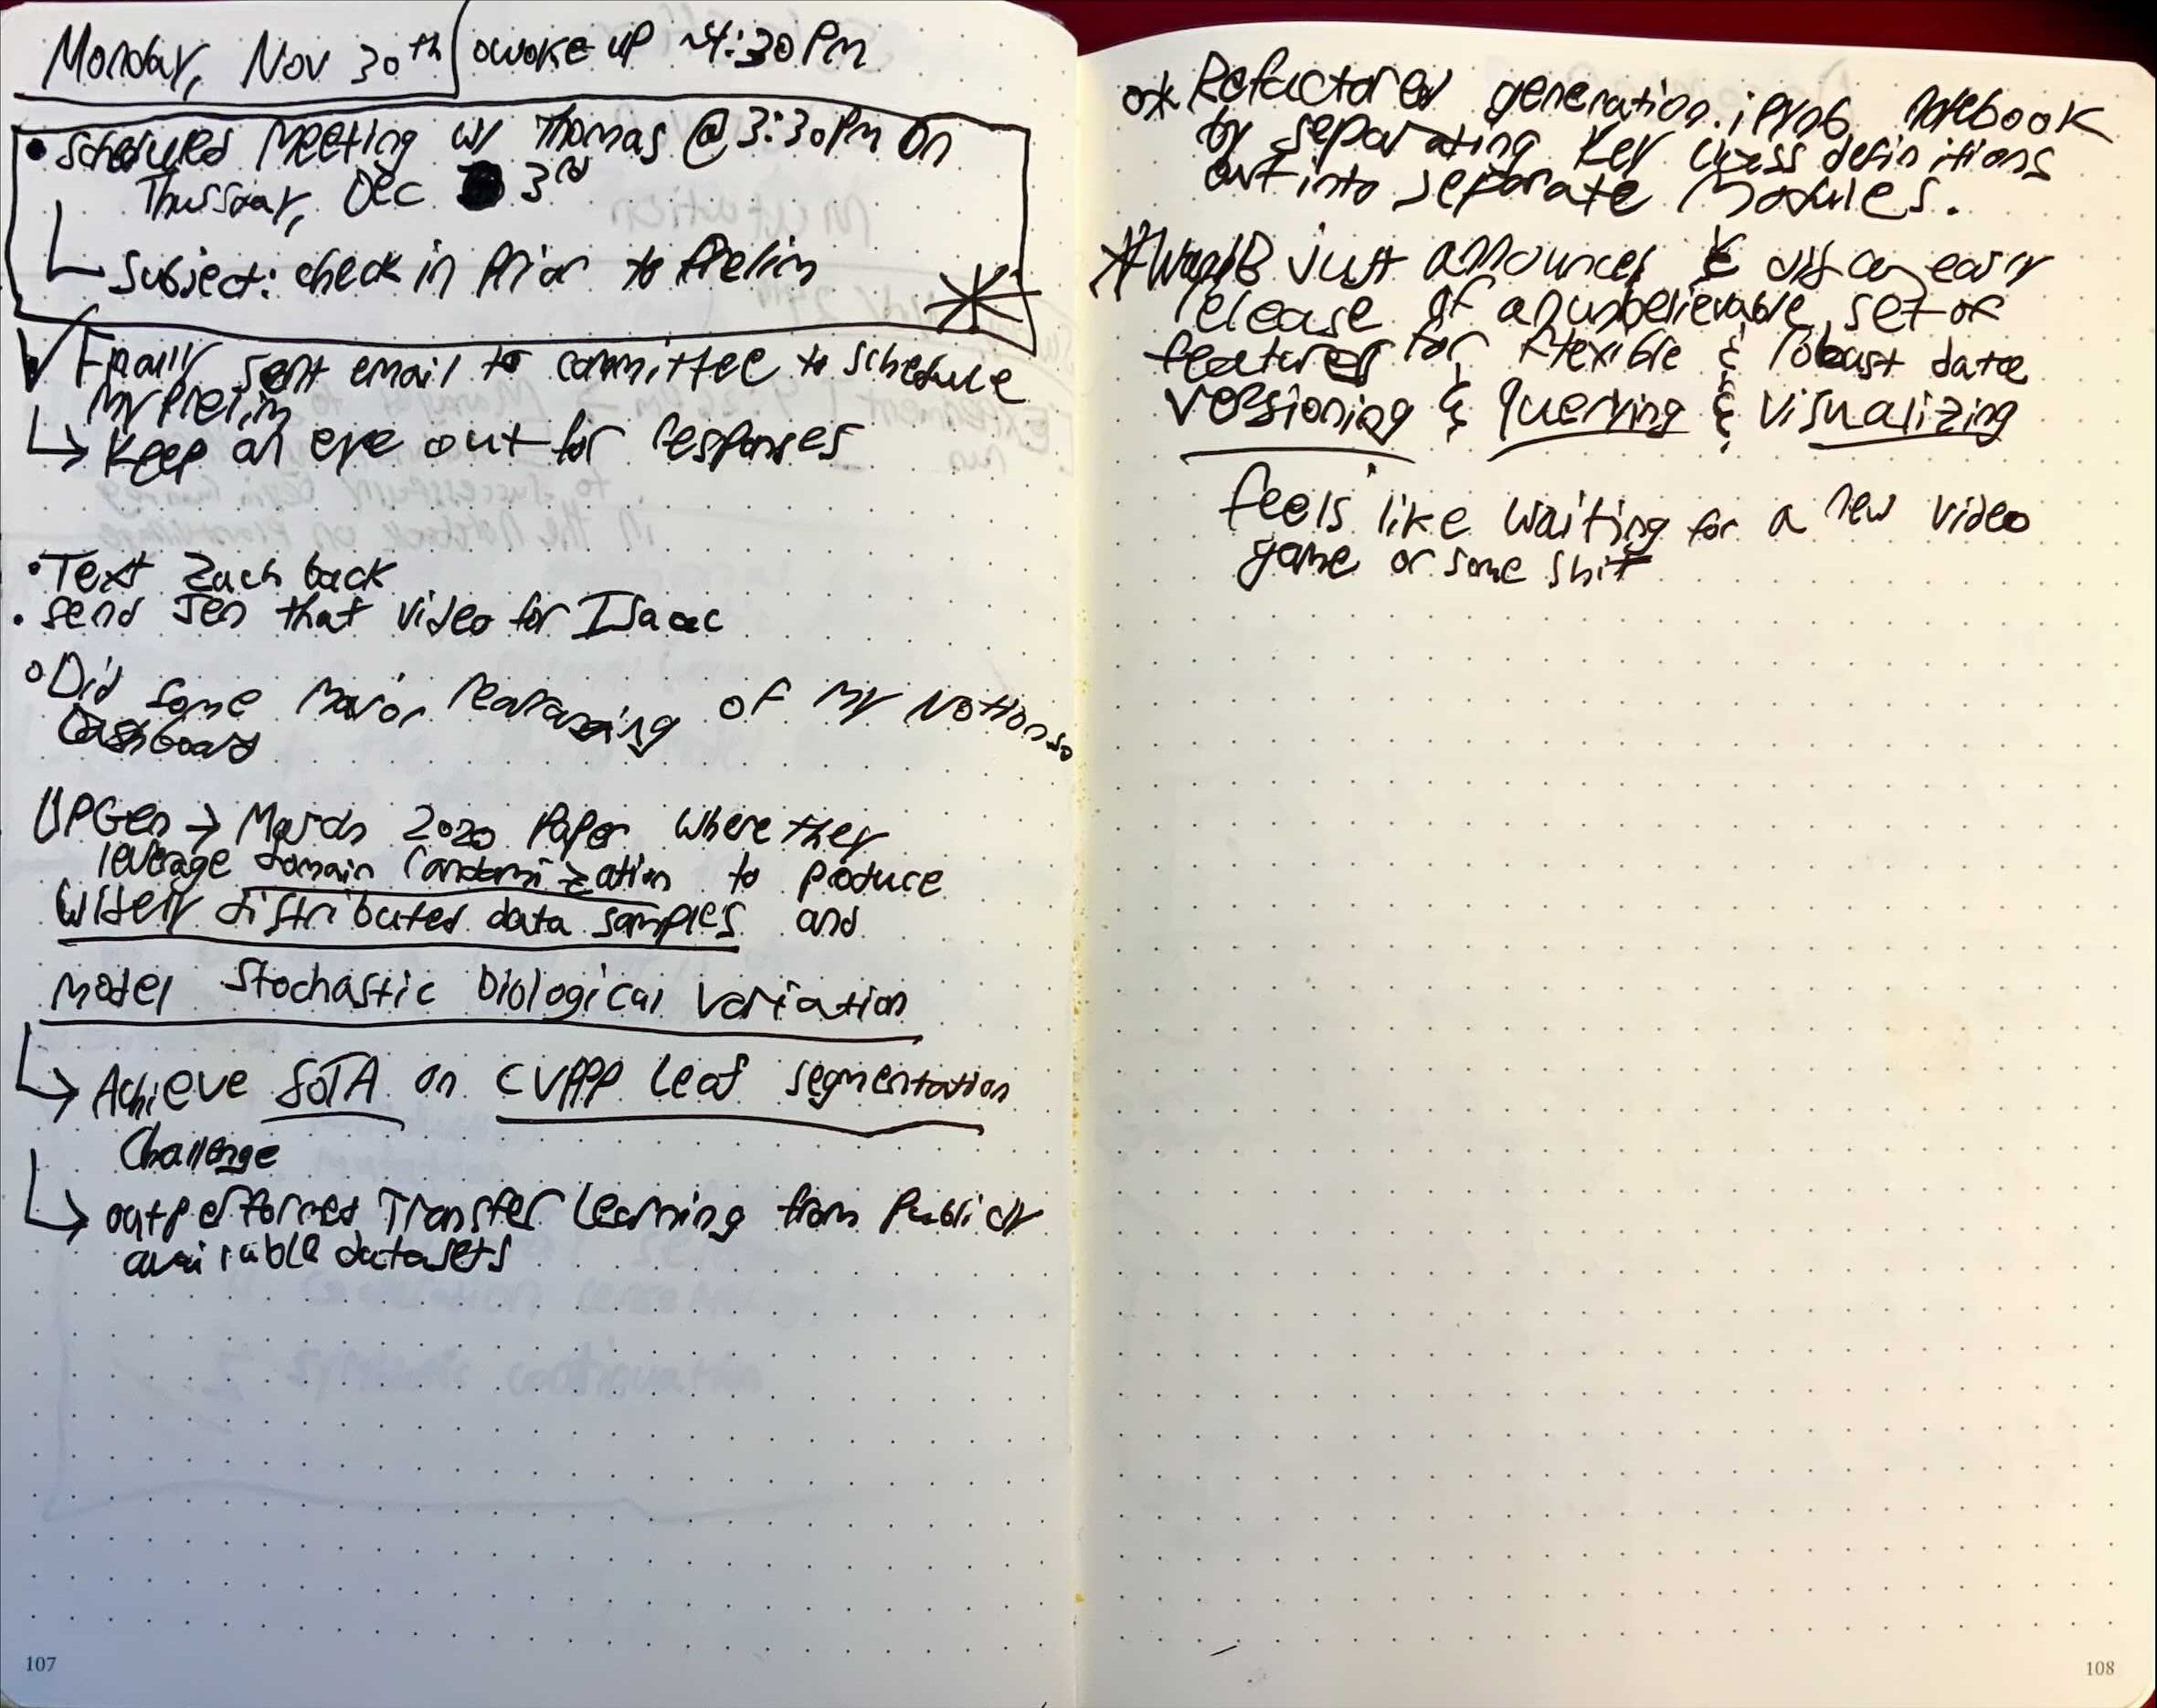 Monday, Nov 30th awoke up ~4:30PM
• Scheduled Meeting w/ Thomas @ 3:30PM on
Thursday, Dec 3rd
Subject: check in prior to prelim
Finally sent email to committee to schedule
my prelim
→ Keep an eye out for responses
• Text Zach back
• Send Jen that video for Isaac
° Did some major rearranging of my Notion.so
Dashboard
UPGen → March 2020 Paper where they
leverage domain randomization to produce
widely distributed data samples and
model stochastic biological variation
→ Achieve SOTA on CVPPP Leaf Segmentation
Challenge
→ outperformed Transfer Learning from publicly
available datasets
o* Refactored generation.ipynb notebook
by separating key class definitions
out into separate modules.
* WandB just announced & did an early
release of an unbelievable set of
features for flexible & robust data
versioning & querying & visualizing
feels like waiting for a new video
game or some shit
107
108